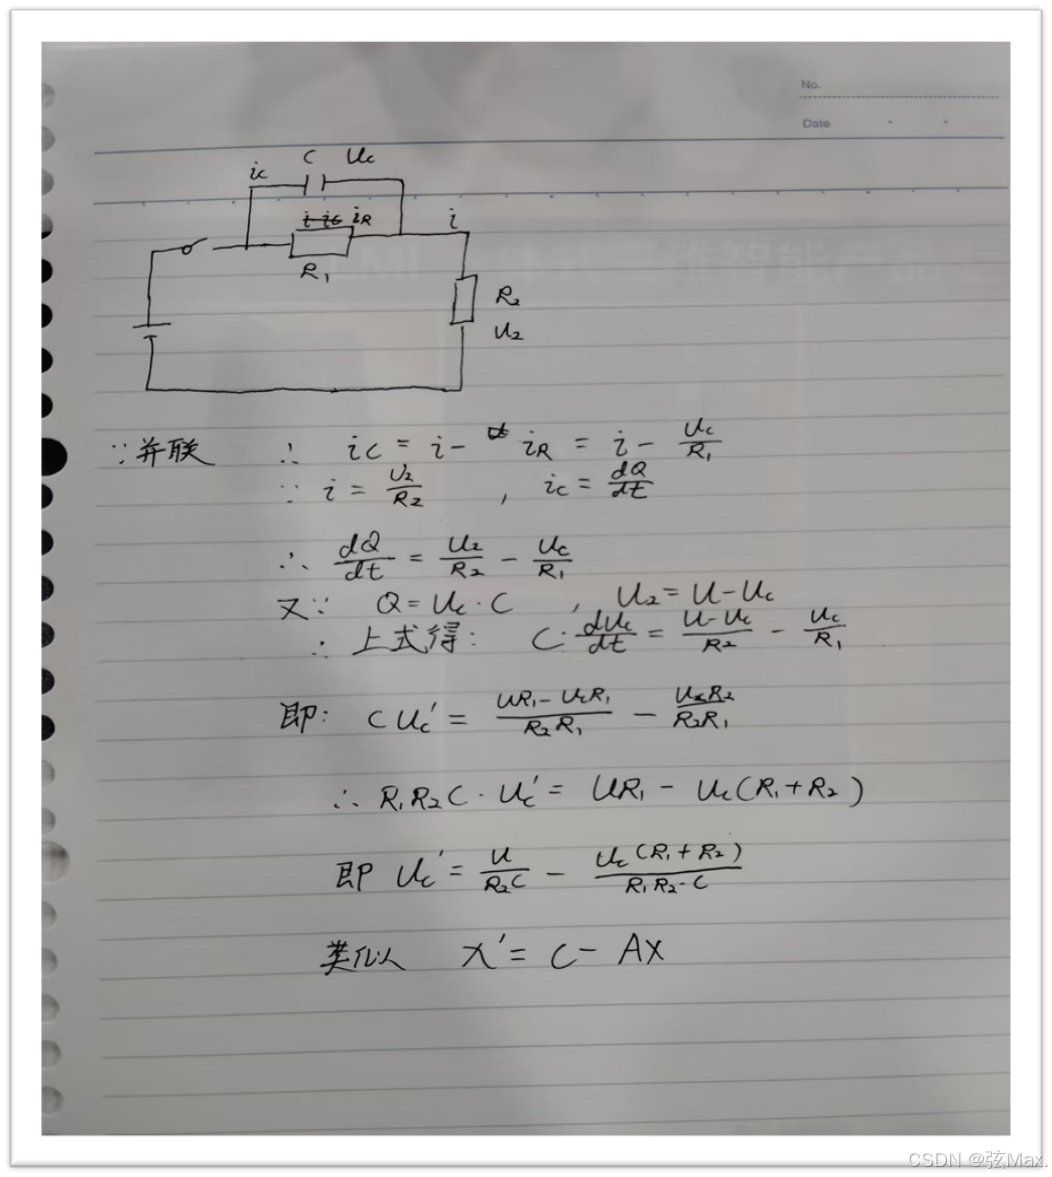 No.
Date
ic C Uc
i-ic iR i
R₁
R₂
U₂
∵并联 ∴ ic = i - iR = i - Uc/R₁
∵ i = U₂/R₂ , ic = dQ/dt
∴ dQ/dt = U₂/R₂ - Uc/R₁
又∵ Q = Uc·C , U₂ = U - Uc
∴ 上式得: C·dUc/dt = (U-Uc)/R₂ - Uc/R₁
即: CUc' = (UR₁-UcR₁)/(R₂R₁) - UcR₂/(R₂R₁)
∴ R₁R₂C·Uc' = UR₁ - Uc(R₁+R₂)
即 Uc' = U/(R₂C) - Uc(R₁+R₂)/(R₁R₂·C)
类似 x' = C - Ax
CSDN @弦Max.